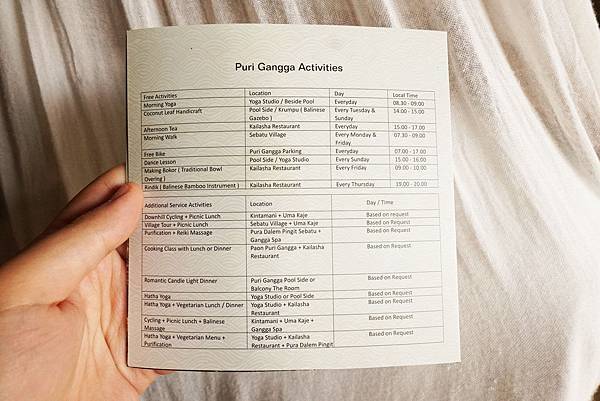 Puri Gangga Activities
Free Activities Location Day Local Time
Morning Yoga Yoga Studio / Beside Pool Everyday 08.30 - 09.00
Coconut Leaf Handicraft Pool Side / Krumpu ( Balinese Every Tuesday & 14.00 - 15.00
Gazebo ) Sunday
Afternoon Tea Kailasha Restaurant Everyday 15.00 - 17.00
Morning Walk Sebatu Village Every Monday & 07.30 - 09.00
Friday
Free Bike Puri Gangga Parking Everyday 07.00 - 17.00
Dance Lesson Pool Side / Yoga Studio Every Sunday 15.00 - 16.00
Making Bokor ( Traditional Bowl Kailasha Restaurant Every Friday 09.00 - 10.00
Overing )
Rindik ( Balinese Bamboo Instrument ) Kailasha Restaurant Every Thursday 19.00 - 20.00
Additional Service Activities Location Day / Time
Downhill Cycling + Picnic Lunch Kintamani + Uma Kaje Based on request
Village Tour + Picnic Lunch Sebatu Village + Uma Kaje Based on Request
Purification + Reiki Massage Pura Dalem Pingit Sebatu + Based on Request
Gangga Spa
Cooking Class with Lunch or Dinner Paon Puri Gangga + Kailasha Based on Request
Restaurant
Romantic Candle Light Dinner Puri Gangga Pool Side or Based on Request
Balcony The Room
Hatha Yoga Yoga Studio or Pool Side Based on Request
Hatha Yoga + Vegetarian Lunch / Dinner Yoga Studio + Kailasha Based on Request
Restaurant
Cycling + Picnic Lunch + Balinese Kintamani + Uma Kaje + Based on Request
Massage Gangga Spa
Hatha Yoga + Vegetarian Menu + Yoga Studio + Kailasha Based on Request
Purification Restaurant + Pura Dalem Pingit